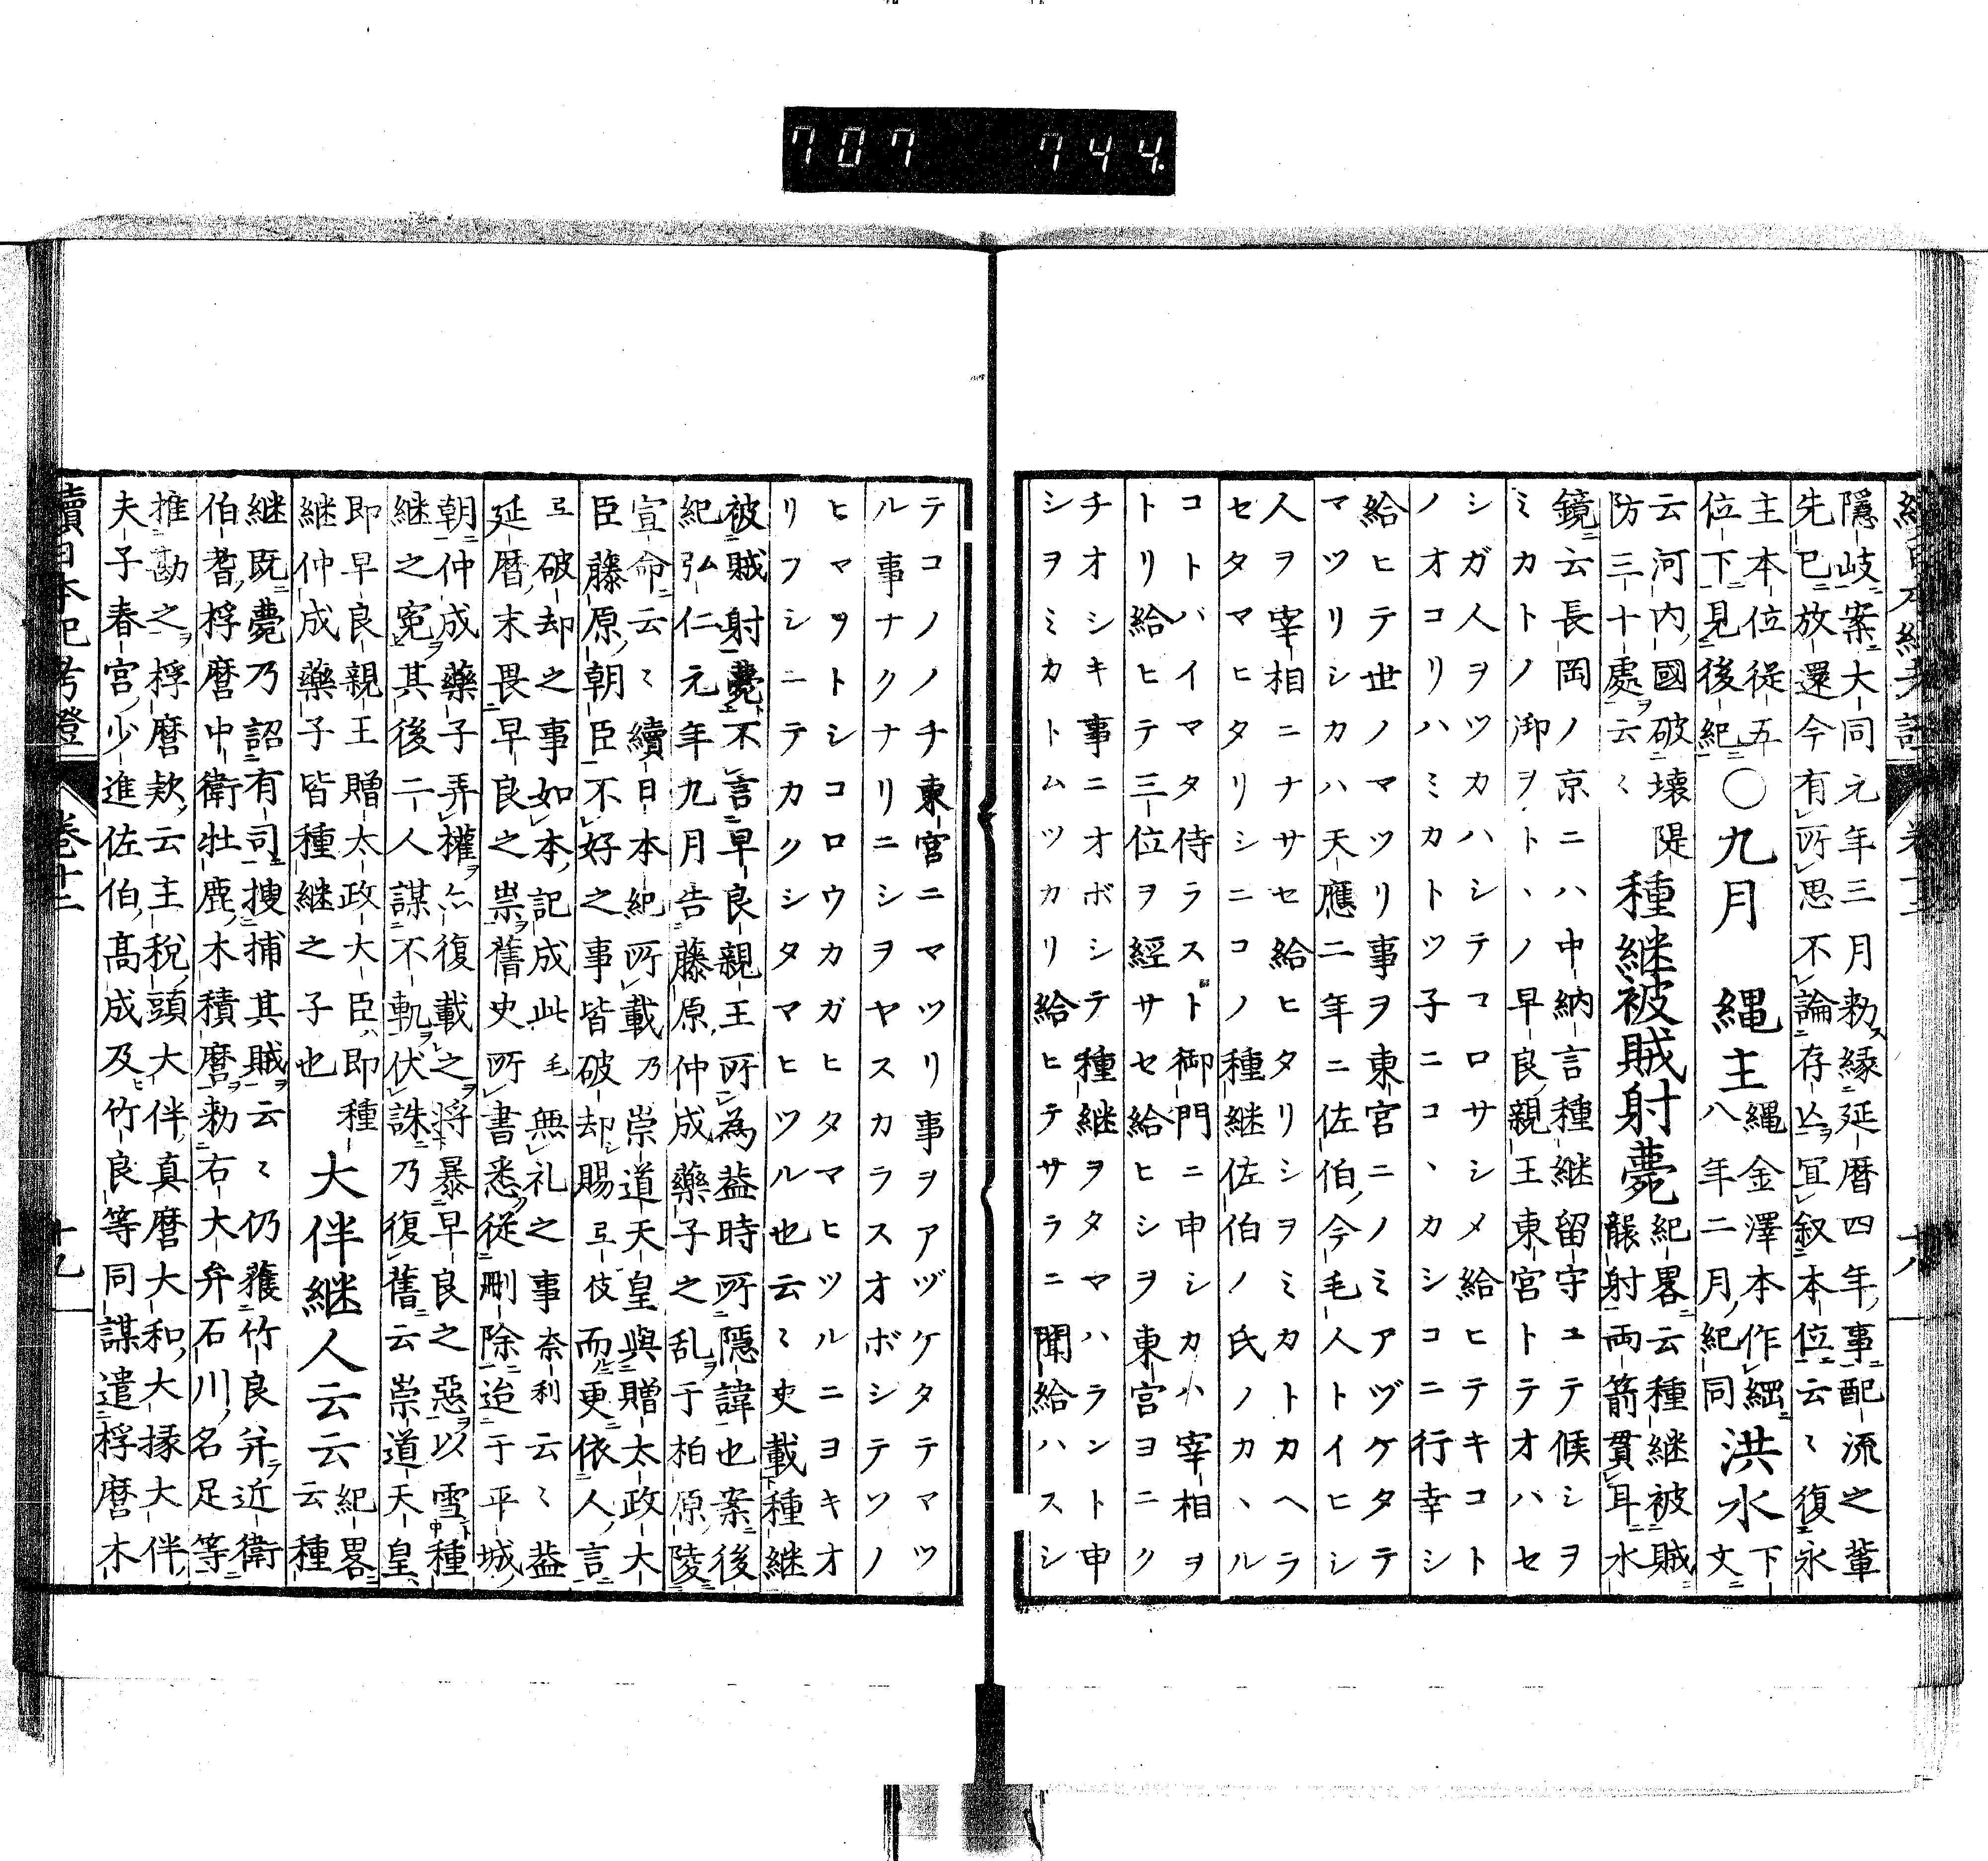 707 744
隱岐案大同元年三月勅緣延暦四年事配流之輩
先已放還今有所思不論存亾冝叙本位云〻復永
主本位從五
位下見後紀
〇九月
縄主
縄金澤本作綱下
八年二月紀同文
洪水
云河内國破壊隄
防三十處云〻
種継被賊射薨
紀畧云種継被賊
襲射両箭貫耳水
鏡云長岡ノ京ニハ中納言種継留守ユテ候シヲ
ミカトノ御ヲトヽノ早良親王東宮トテオハセ
シガ人ヲツカハシテコロサシメ給ヒテキコト
ノオコリハミカトツ子ニコヽカシコニ行幸シ
給ヒテ世ノマツリ事ヲ東宮ニノミアヅケタテ
マツリシカハ天應二年ニ佐伯今毛人トイヒシ
人ヲ宰相ニナサセ給ヒタリシヲミカトカヘラ
セタマヒタリシニコノ種継佐伯ノ氏ノカヽル
コトバイマタ侍ラスト御門ニ申シカハ宰相ヲ
トリ給ヒテ三位ヲ經サセ給ヒシヲ東宮ヨニク
チオシキ事ニオボシテ種継ヲタマハラント申
シヲミカトムツカリ給ヒテサラニ聞給ハスシ
テコノノチ東宮ニマツリ事ヲアヅケタテマツ
ル事ナクナリニシヲヤスカラスオボシテソノ
ヒマヲトシコロウカガヒタマヒツルニヨキオ
リフシニテカクシタマヒツル也云〻史載種継
被賊射薨不言早良親王所為葢時所隱諱也案後
紀弘仁元年九月告藤原仲成藥子之乱于柏原陵
宣命云〻續日本紀所載乃崇道天皇與贈太政大
臣藤原朝臣不好之事皆破却賜弖伎而更依人言
弖破却之事如本記成此毛無礼之事奈利云〻葢
延暦末畏早良之祟舊史所書悉從刪除迨于平城
朝仲成藥子弄權亦復載之将暴早良之惡以雪種
継之寃其後二人謀不軌伏誅乃復舊云崇道天皇
即早良親王贈太政大臣即種
継仲成藥子皆種継之子也
大伴継人云云
紀畧
云種
継既薨乃詔有司捜捕其賊云〻仍獲竹良并近衛
伯耆桴麿中衛牡鹿木積麿勅右大弁石川名足等
推勘之桴麿款云主税頭大伴真麿大和大掾大伴
夫子春宮少進佐伯髙成及竹良等同謀遣桴麿木
續日本紀考證
卷十二
十九